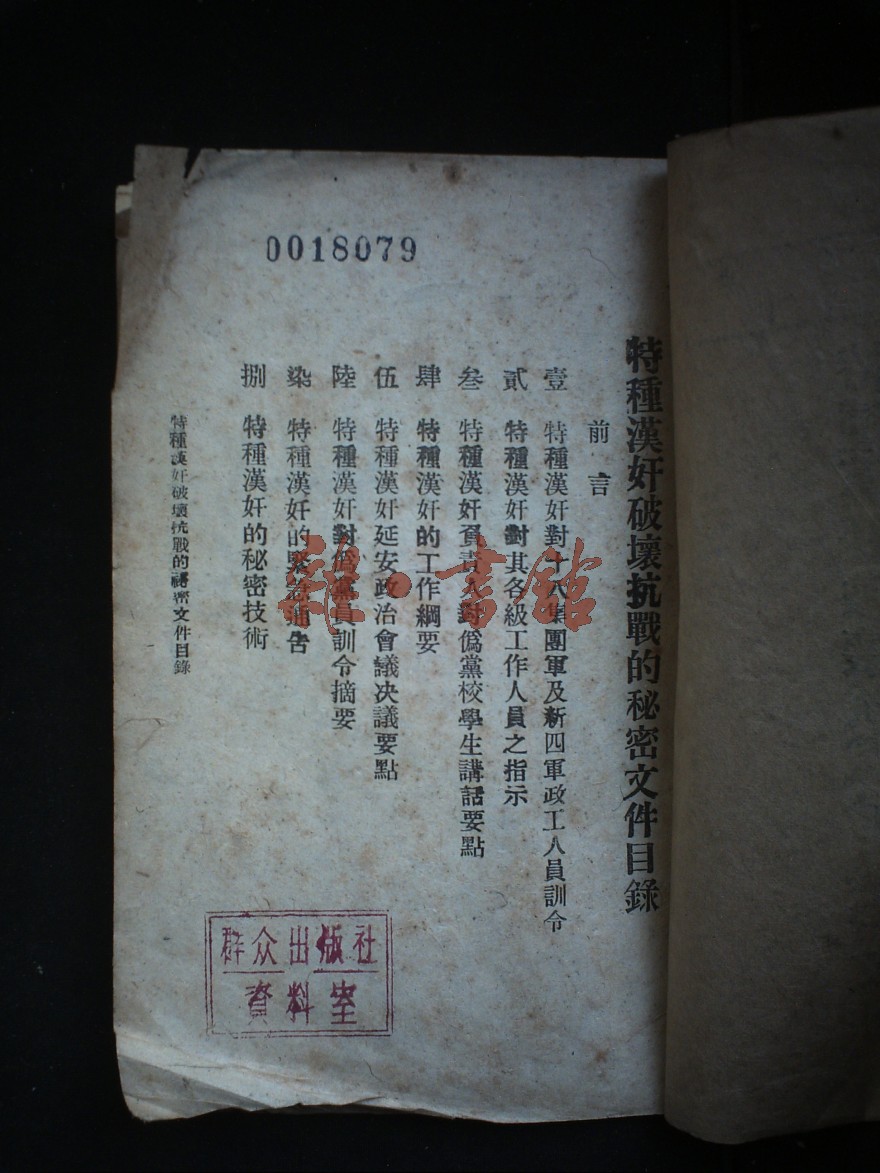 0018079
特種漢奸破壞抗戰的秘密文件目錄
前言
壹 特種漢奸對十八集團軍及新四軍政工人員訓令
貳 特種漢奸對其各級工作人員之指示
叁 特種漢奸負責人對僞黨校學生講話要點
肆 特種漢奸的工作綱要
伍 特種漢奸延安政治會議決議要點
陸 特種漢奸對僞黨員訓令摘要
柒 特種漢奸的緊急通告
捌 特種漢奸的秘密技術
特種漢奸破壞抗戰的秘密文件目錄
群众出版社
資料室
書館